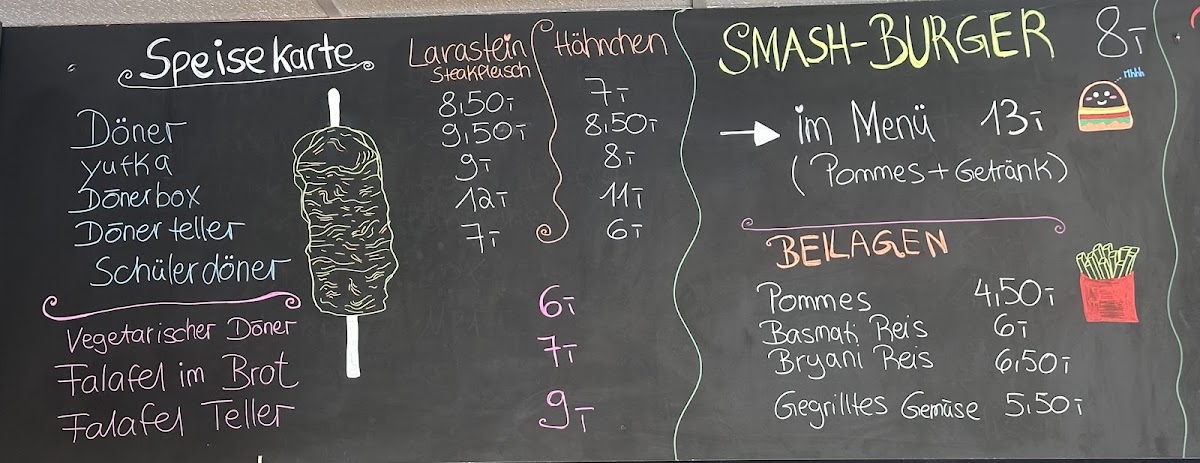 Speisekarte
Larastein Hähnchen
Steakfleisch
Döner 8,50,- 7,-
Yufka 9,50,- 8,50,-
Dönerbox 9,- 8,-
Dönerteller 12,- 11,-
Schülerdöner 7,- 6,-
Vegetarischer Döner 6,-
Falafel im Brot 7,-
Falafel Teller 9,-
SMASH-BURGER 8,-
Mhhh
im Menü 13,-
(Pommes + Getränk)
BEILAGEN
Pommes 4,50,-
Basmati Reis 6,-
Bryani Reis 6,50,-
Gegrilltes Gemüse 5,50,-